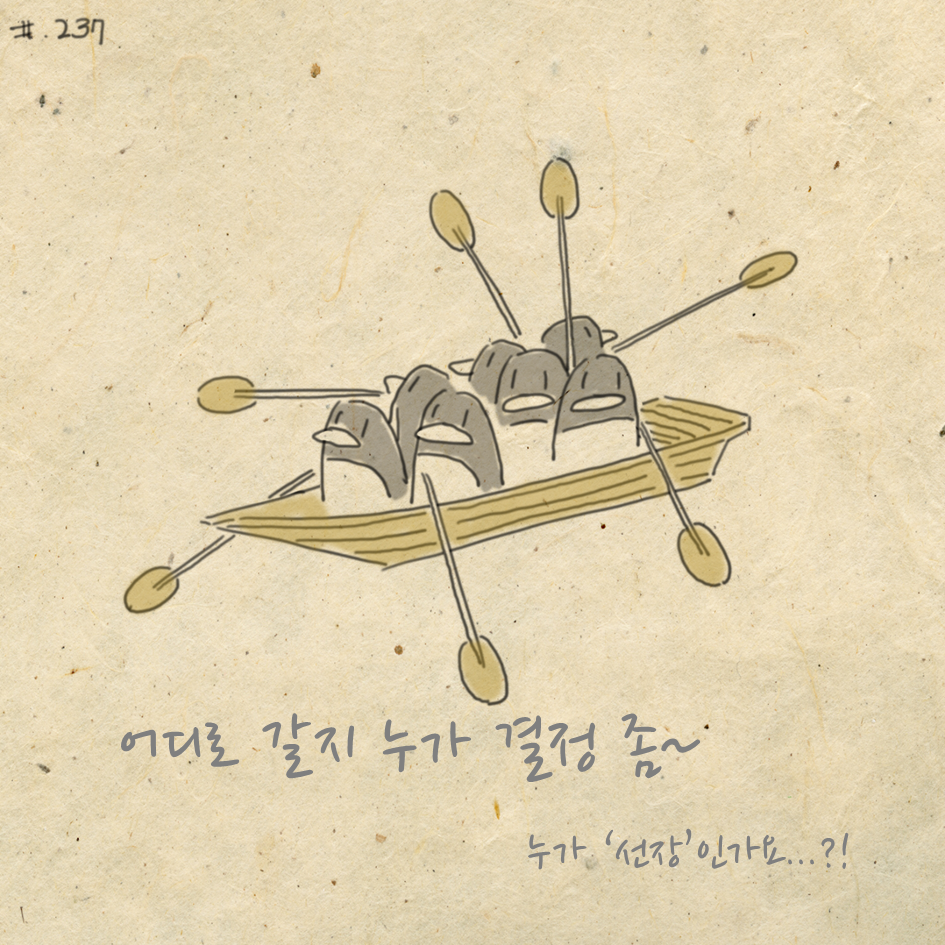 #. 237
어디로 갈지 누가 결정 좀~
누가 '선장'인가요...?!